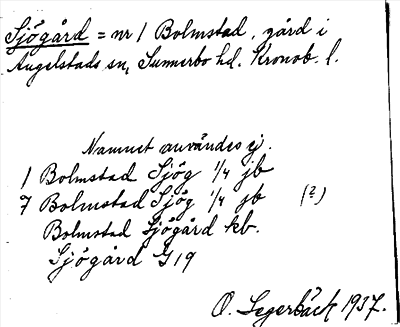 Sjögård = nr 1 Bolmstad, gård i
Angelstads sn, Sunnerbo hd. Kronob. l.
Namnet användes ej.
1 Bolmstad Sjög 1/4 jb
7 Bolmstad Sjög 1/4 jb (?)
Bolmstad Sjögård kb.
Sjögård G19
O. Segerbäck 1937.